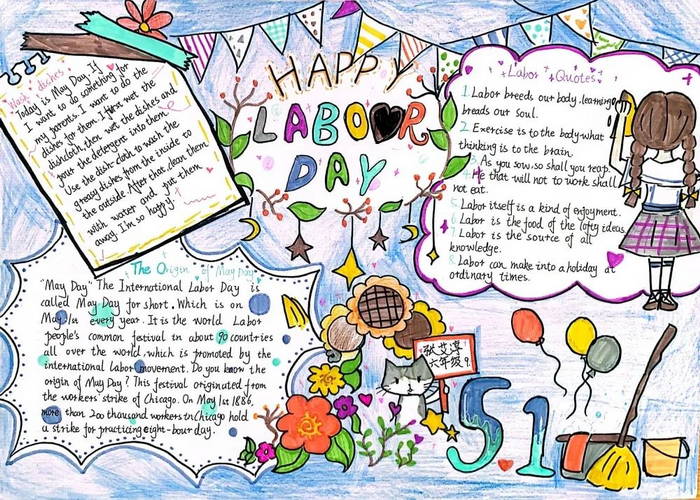 Wash dishes
Today is May Day. I
I want to do something for
my parents. I want to do the
dishes for them. First wet the
dishcloth, then wet the dishes and
pour the detergent into them
Use the dish-cloth to wash the
greasy dishes from the inside to
the outside. After that, clean them
with water and put them
away. I'm so happy.
HAPPY
LABOR
DAY
Labor Quotes
1. Labor breeds our body, learning
breads our soul.
2. Exercise is to the body what
thinking is to the brain.
3. As you sow, so shall you reap.
4. He that will not to work shall
not eat.
5. Labor itself is a kind of enjoyment.
6. Labor is the food of the lofty ideas
7. Labor is the source of all
knowledge.
8. Labor can make into a holiday at
ordinary times.
The Origin of May Day
"May Day" The International Labor Day is
called May Day for short. Which is on
May.1st every year. It is the world Labor
people's common festival in about 90 countries
all over the world, which is promoted by the
international labor movement. Do you know the
origin of May Day? This festival originated from
the workers' strike of Chicago. On May.1st 1886,
more than 200 thousand workers in Chicago hold
a strike for practicing eight-bour day.
张艾淳
六年级9.
5.1